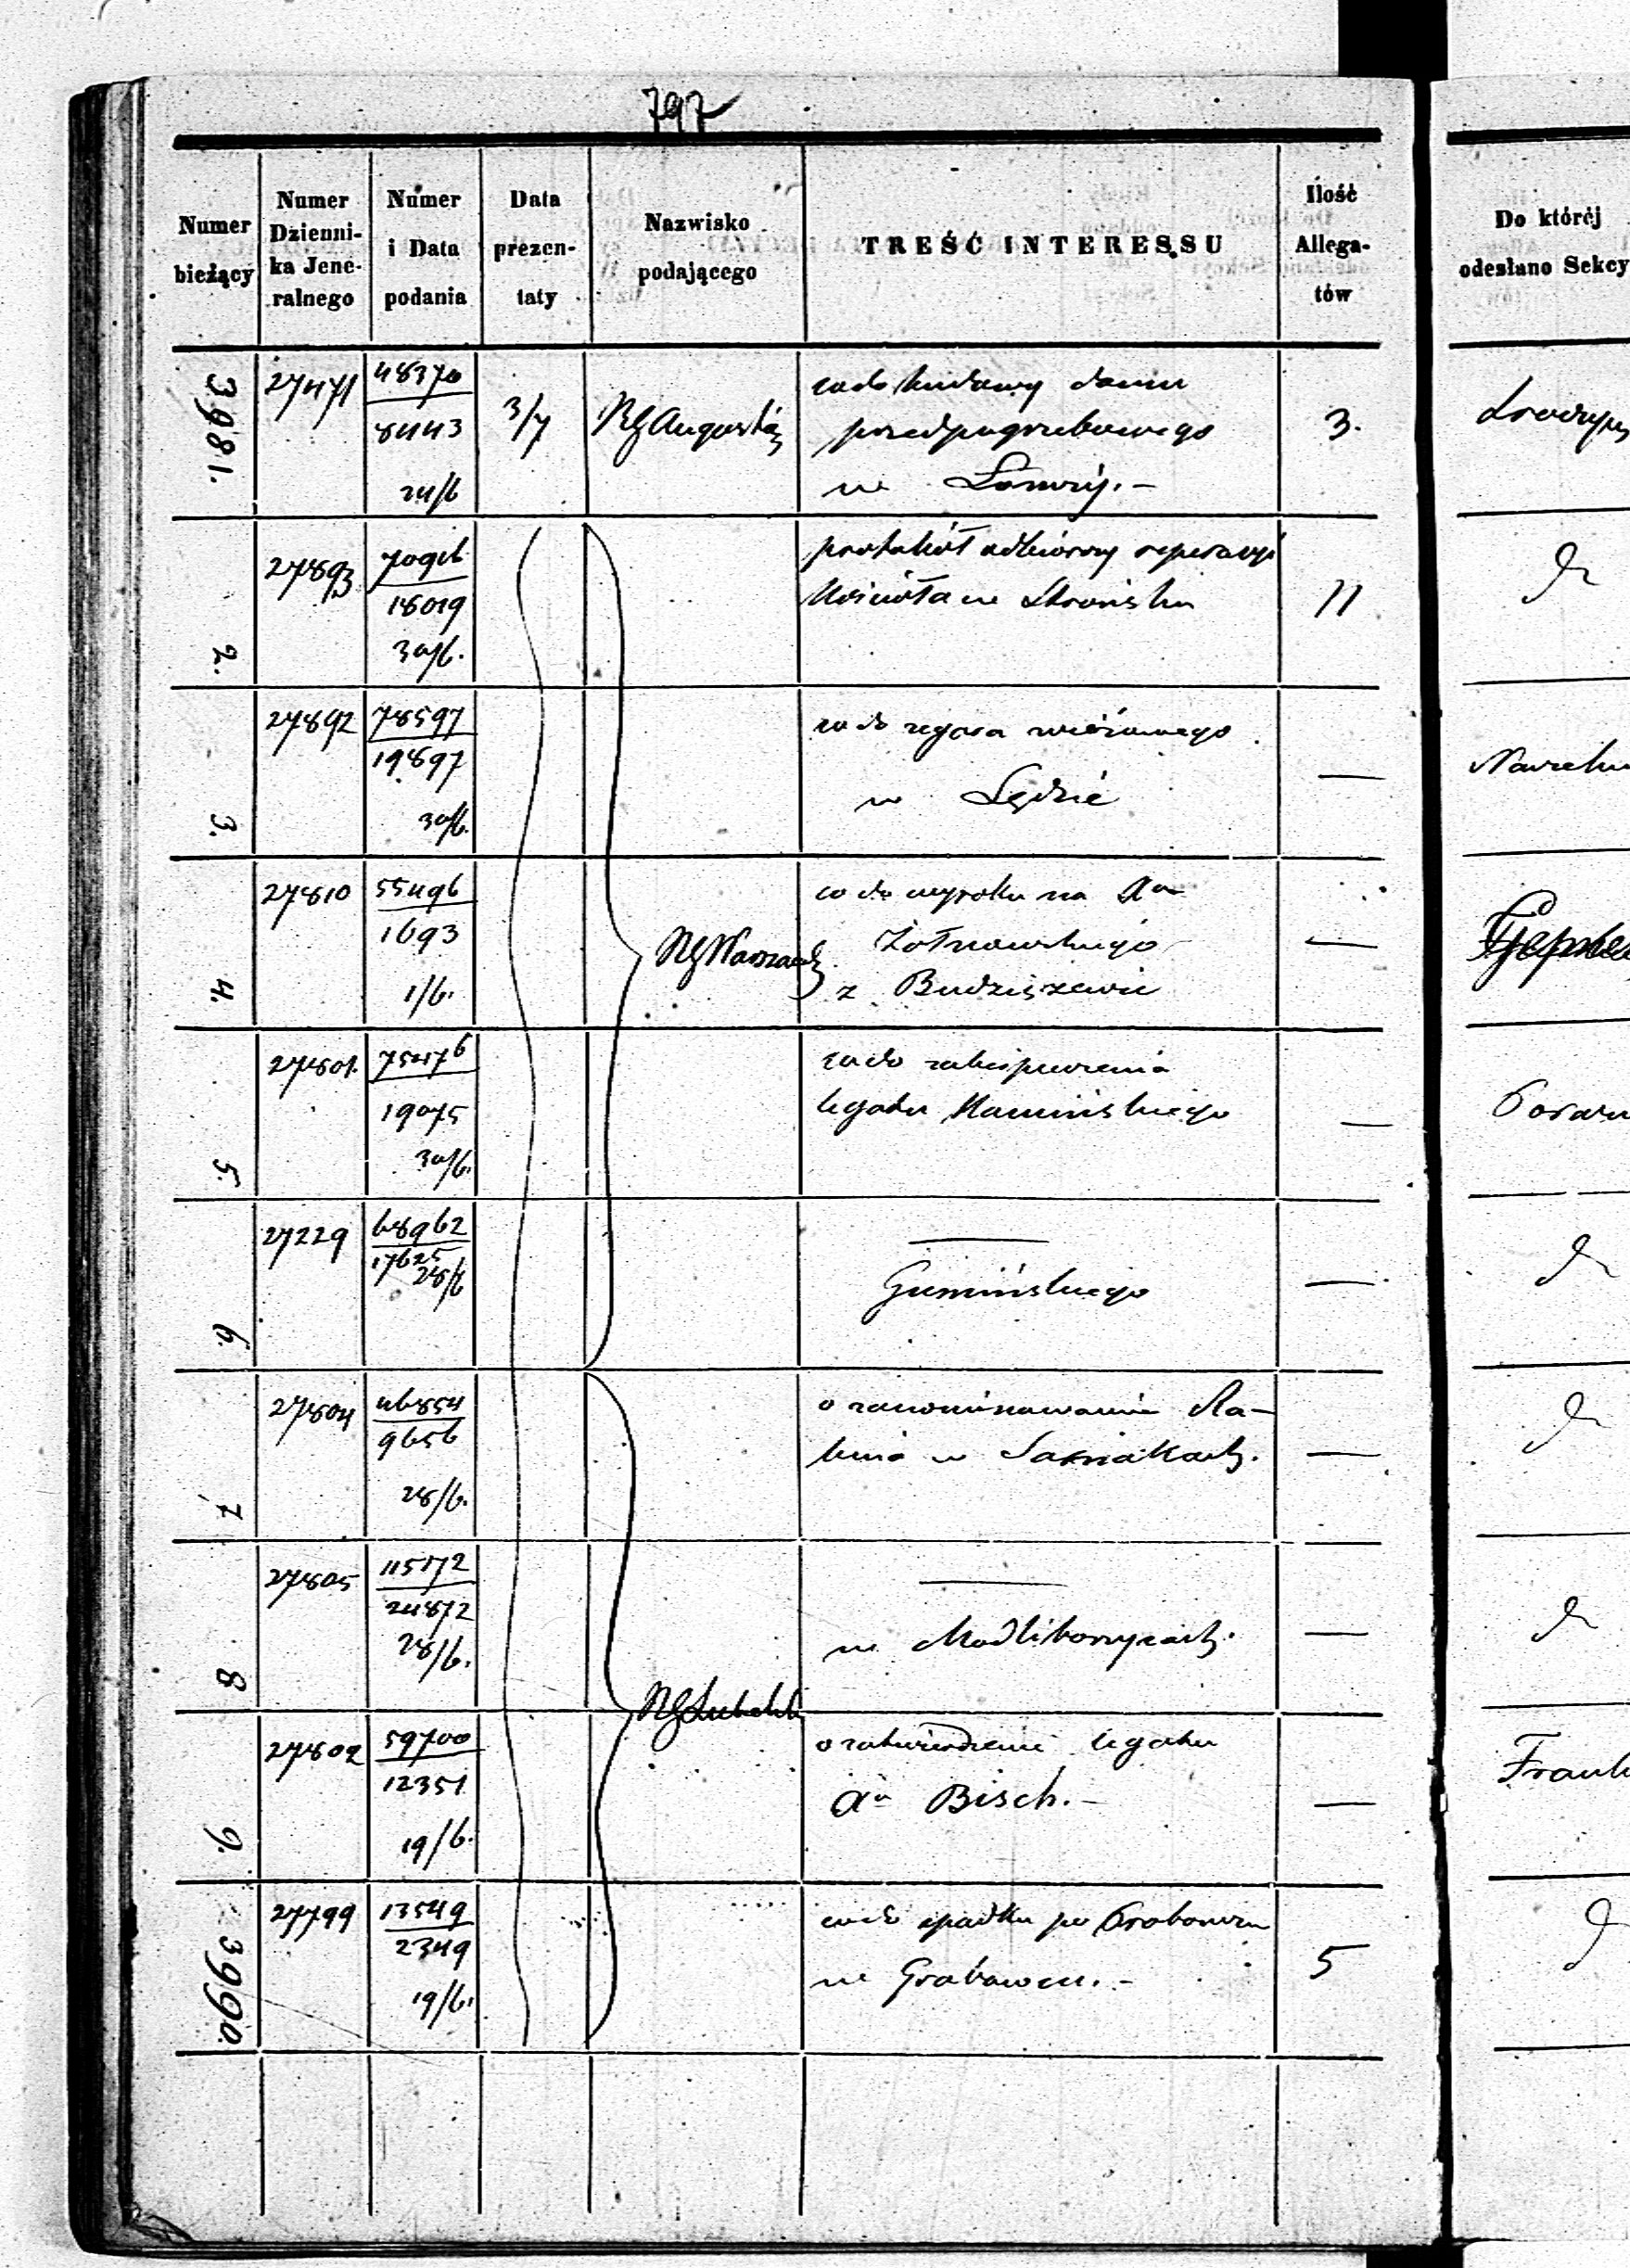 797
Numer bieżący
Numer Dzienni- ka Jene- ralnego
Numer i Data podania
Data prezen- taty
Nazwisko podającego
TREŚĆ INTERESSU
Ilość Allega- tów
Do którėj odesłano Sekcy
3981.
27471
48370
8443
24/6
3/7
RG Augustów
co do budowy domu
przedpogrzebowego
w Łomży.-
3.
2.
27893
18019
30/6.
protokół odbiorczy reperacyi
Kościoła w
11
3.
27892
78597
19897
30/6.
co do zegara wieżowego
w Lędzie
—
4.
27810
55496
1693
1/6.
RG Warszawski
co do wyroku na
Żołnowskiego
z Budziszewic
—
5.
27801.
19075
30/6.
co do zabezpieczenia
legatu Kamińskiego
—
6.
27229
68962
17625
28/6
—
Gumińskiego
—
7
27804
46854
9656
28/6.
o zanominowanie Ra-
bina w
—
8
27805
115172
24872
28/6.
RG Lubelski
—
w Modliborzycach.
—
9.
27802
59700
12351
19/6.
o zatwierdzenie legatu
Bisch.-
—
3990.
27799
13549
2349
19/6.
co do spadku po
w Grabowcu.-
5